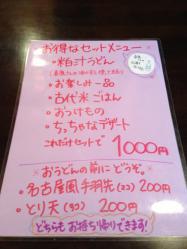 お得なセットメニュー
・粕汁うどん
・お楽しみ一品
・古代米ごはん
・おつけもの
・ちっちゃなデザート
これだけセットで 1000円
おうどんの前にどうぞ。
名古屋風手羽先(2コ)200円
・とり天(タコ)200円
どちらもお持ち帰りできます!